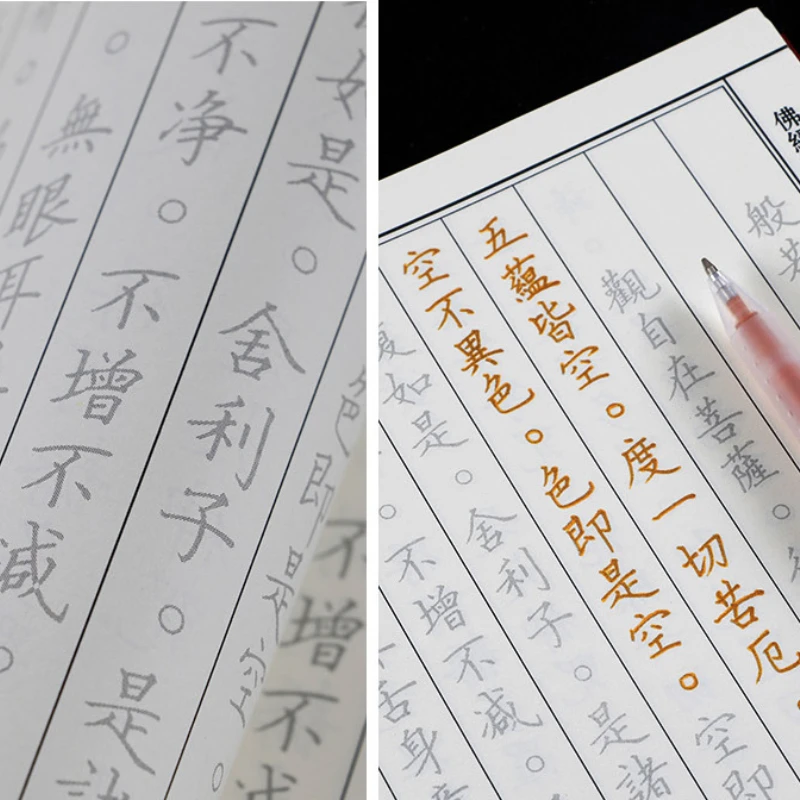 不增不
色即是空。
如是。舍利子。是
不净。不增不減。
。無眼耳
佛經
般若
觀自在菩薩。
五蘊皆空。度一切苦厄
空不異色。色即是空。空即
復如是。舍利子。是諸
。不增不減。
舌身